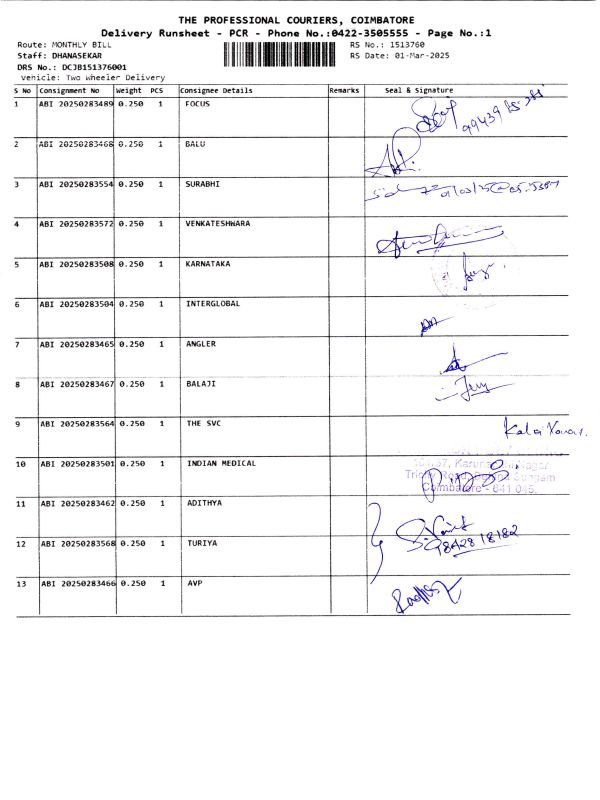 THE PROFESSIONAL COURIERS, COIMBATORE
Delivery Runsheet - PCR - Phone No.:0422-3505555 - Page No.:1
Route: MONTHLY BILL RS No.: 1513760
Staff: DHANASEKAR RS Date: 01-Mar-2025
DRS No.: DCJB151376001
Vehicle: Two Wheeler Delivery
S No Consignment No Weight PCS Consignee Details Remarks Seal & Signature
1 ABI 20250283489 0.250 1 FOCUS
2 ABI 20250283468 0.250 1 BALU
3 ABI 20250283554 0.250 1 SURABHI
4 ABI 20250283572 0.250 1 VENKATESHWARA
5 ABI 20250283508 0.250 1 KARNATAKA
6 ABI 20250283504 0.250 1 INTERGLOBAL
7 ABI 20250283465 0.250 1 ANGLER
8 ABI 20250283467 0.250 1 BALAJI
9 ABI 20250283564 0.250 1 THE SVC
10 ABI 20250283501 0.250 1 INDIAN MEDICAL
Coimbatore - 641 045.
11 ABI 20250283462 0.250 1 ADITHYA
12 ABI 20250283568 0.250 1 TURIYA
98428 18182
13 ABI 20250283466 0.250 1 AVP